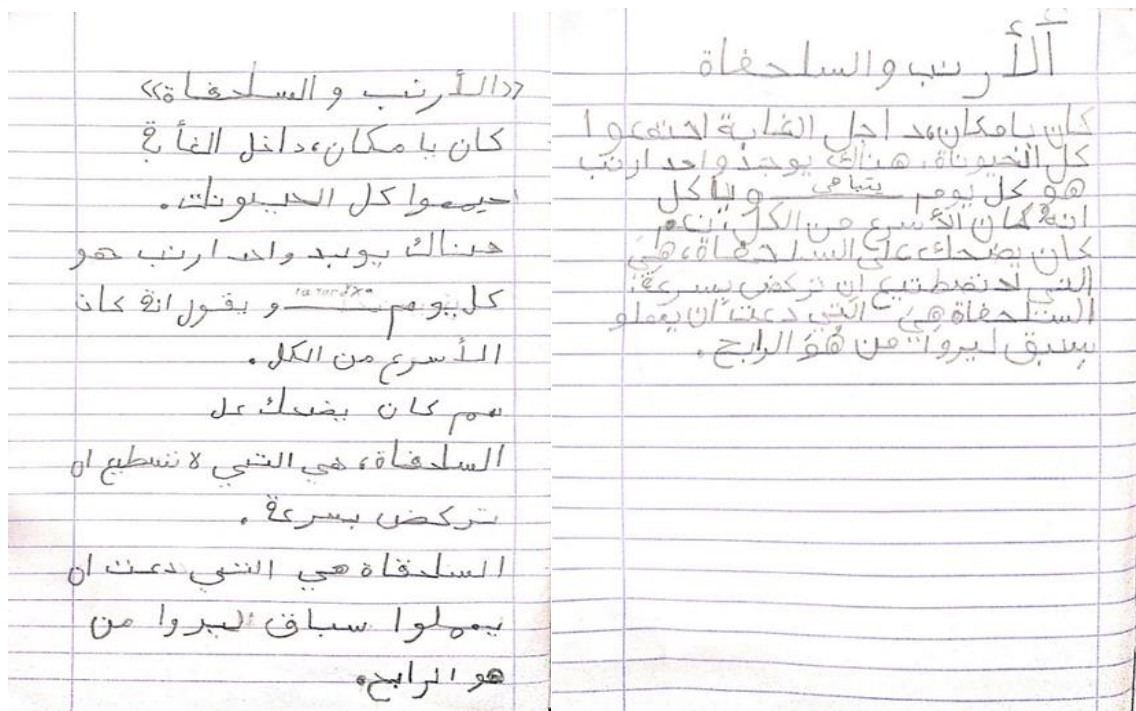 ألأرنب والسلحفاة
كان يا مكان، داجل الغابة اجتمعوا
كل الحيوناة. هناك يوجد واحد ارنب
هو كل يوم يتباهى ويأكل
انه كان الأسرع من الكل، نعم
كان يضحك على السلحفاة، هي
التي لا تضطتيع ان تركض بسرعة.
السلحفاة هي التي دعت أن يعملو
بسبق ليروا من هو الرابح.
«الأرنب و السلحفاة»
كان يا مكان، داخل الغأبة
اجيمعوا كل الحيونات.
هناك يوجد واحد ارنب هو
كل يوم و يقول انه كان
الأسرع من الكل.
هم كان يضحك عل
السلحفاة، هي التي لا تسطيع ان
تركض بسرعة.
السلحفاة هي التي دعت ان
يعملوا سباق ليروا من
هو الرابح.